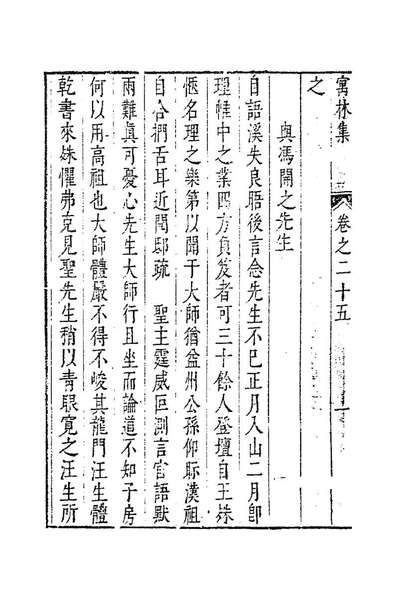 寓林集
卷之二十五
之
與馮開之先生
自語溪失良晤後言念先生不已正月入山二月卽
理帷中之業四方負笈者可三十餘人登壇自王殊
愜名理之樂第以聞于大師猶益州公孫仰眎漢祖
自合捫舌耳近閱邸疏 聖主霆威叵測言官語默
兩難眞可憂心先生大師行且坐而論道不知子房
何以用高祖也大師體嚴不得不峻其龍門汪生體
乾書來姝懼弗克見聖先生稍以青眼寬之汪生所